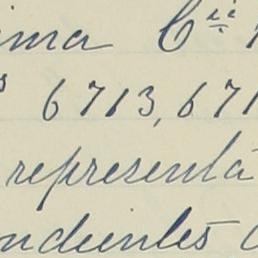 ima Cii
6713, 671
representa
ndientes